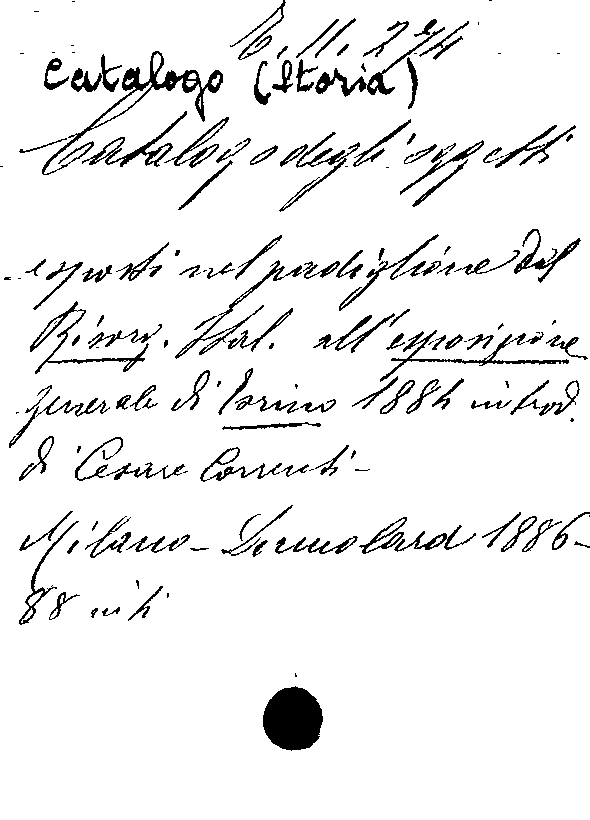 E. 11. 274
Catalogo (Storia)
Catalogo degli oggetti
esposti nel padiglione del
Risorg. Ital. all'esposizione
generale di Torino 1884 introd.
di Cesare Correnti -
Milano - Dumolard 1886-
88 in